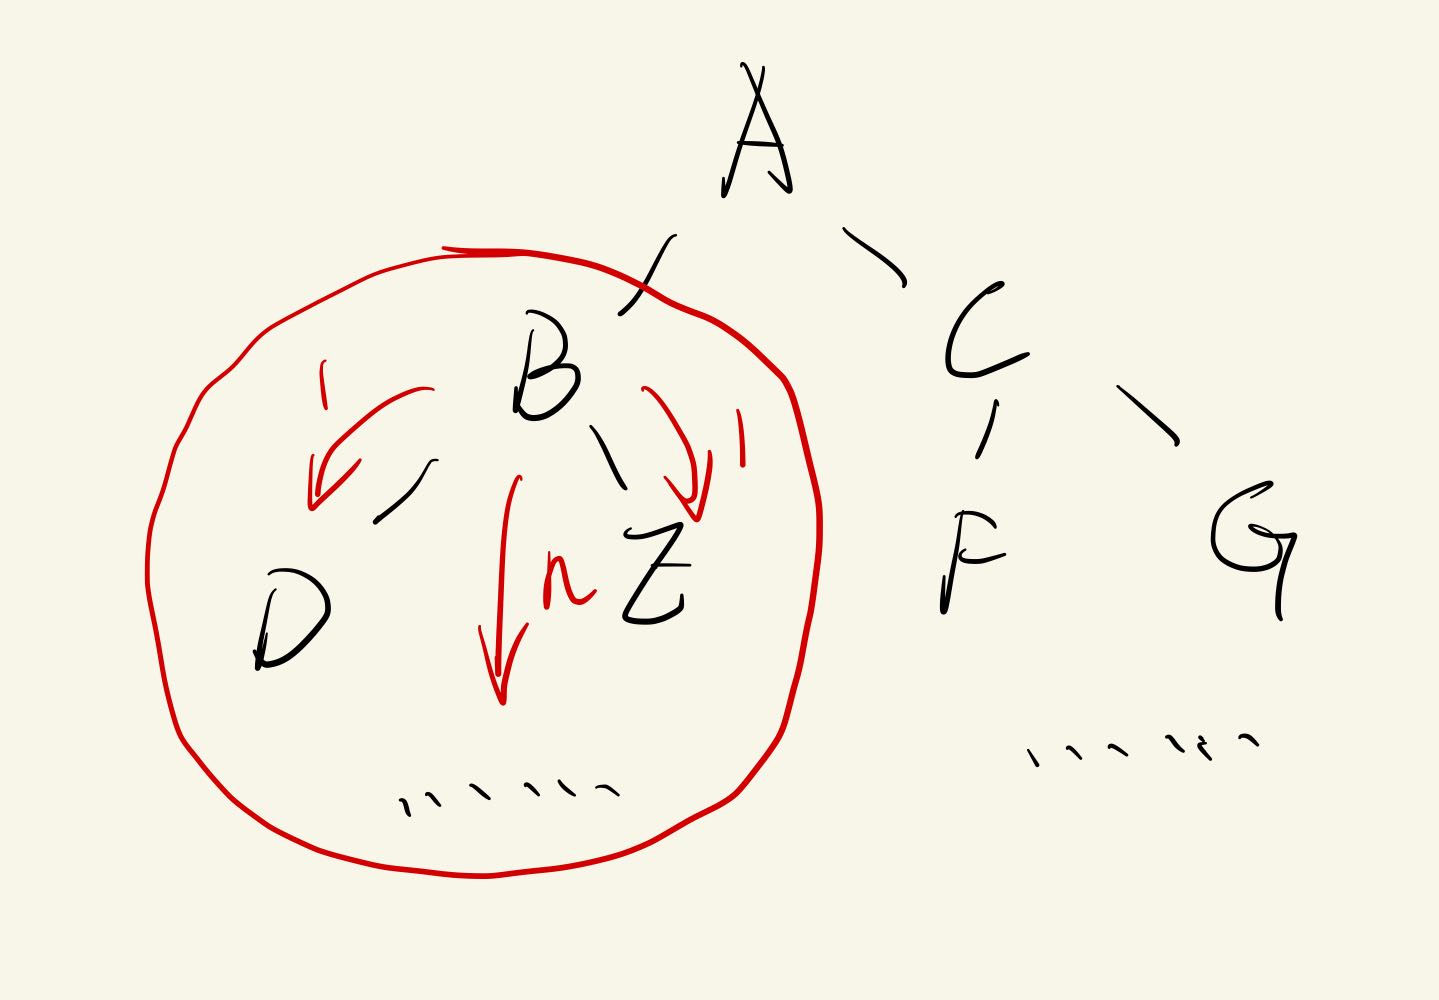 A
B C
1 1
n
D E F G